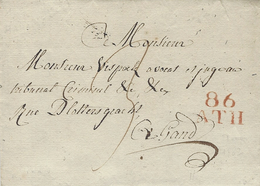 A Monsieur
Monsieur avocat et juge au
tribunal Criminel & &
Rue
86
ATH
A Gand